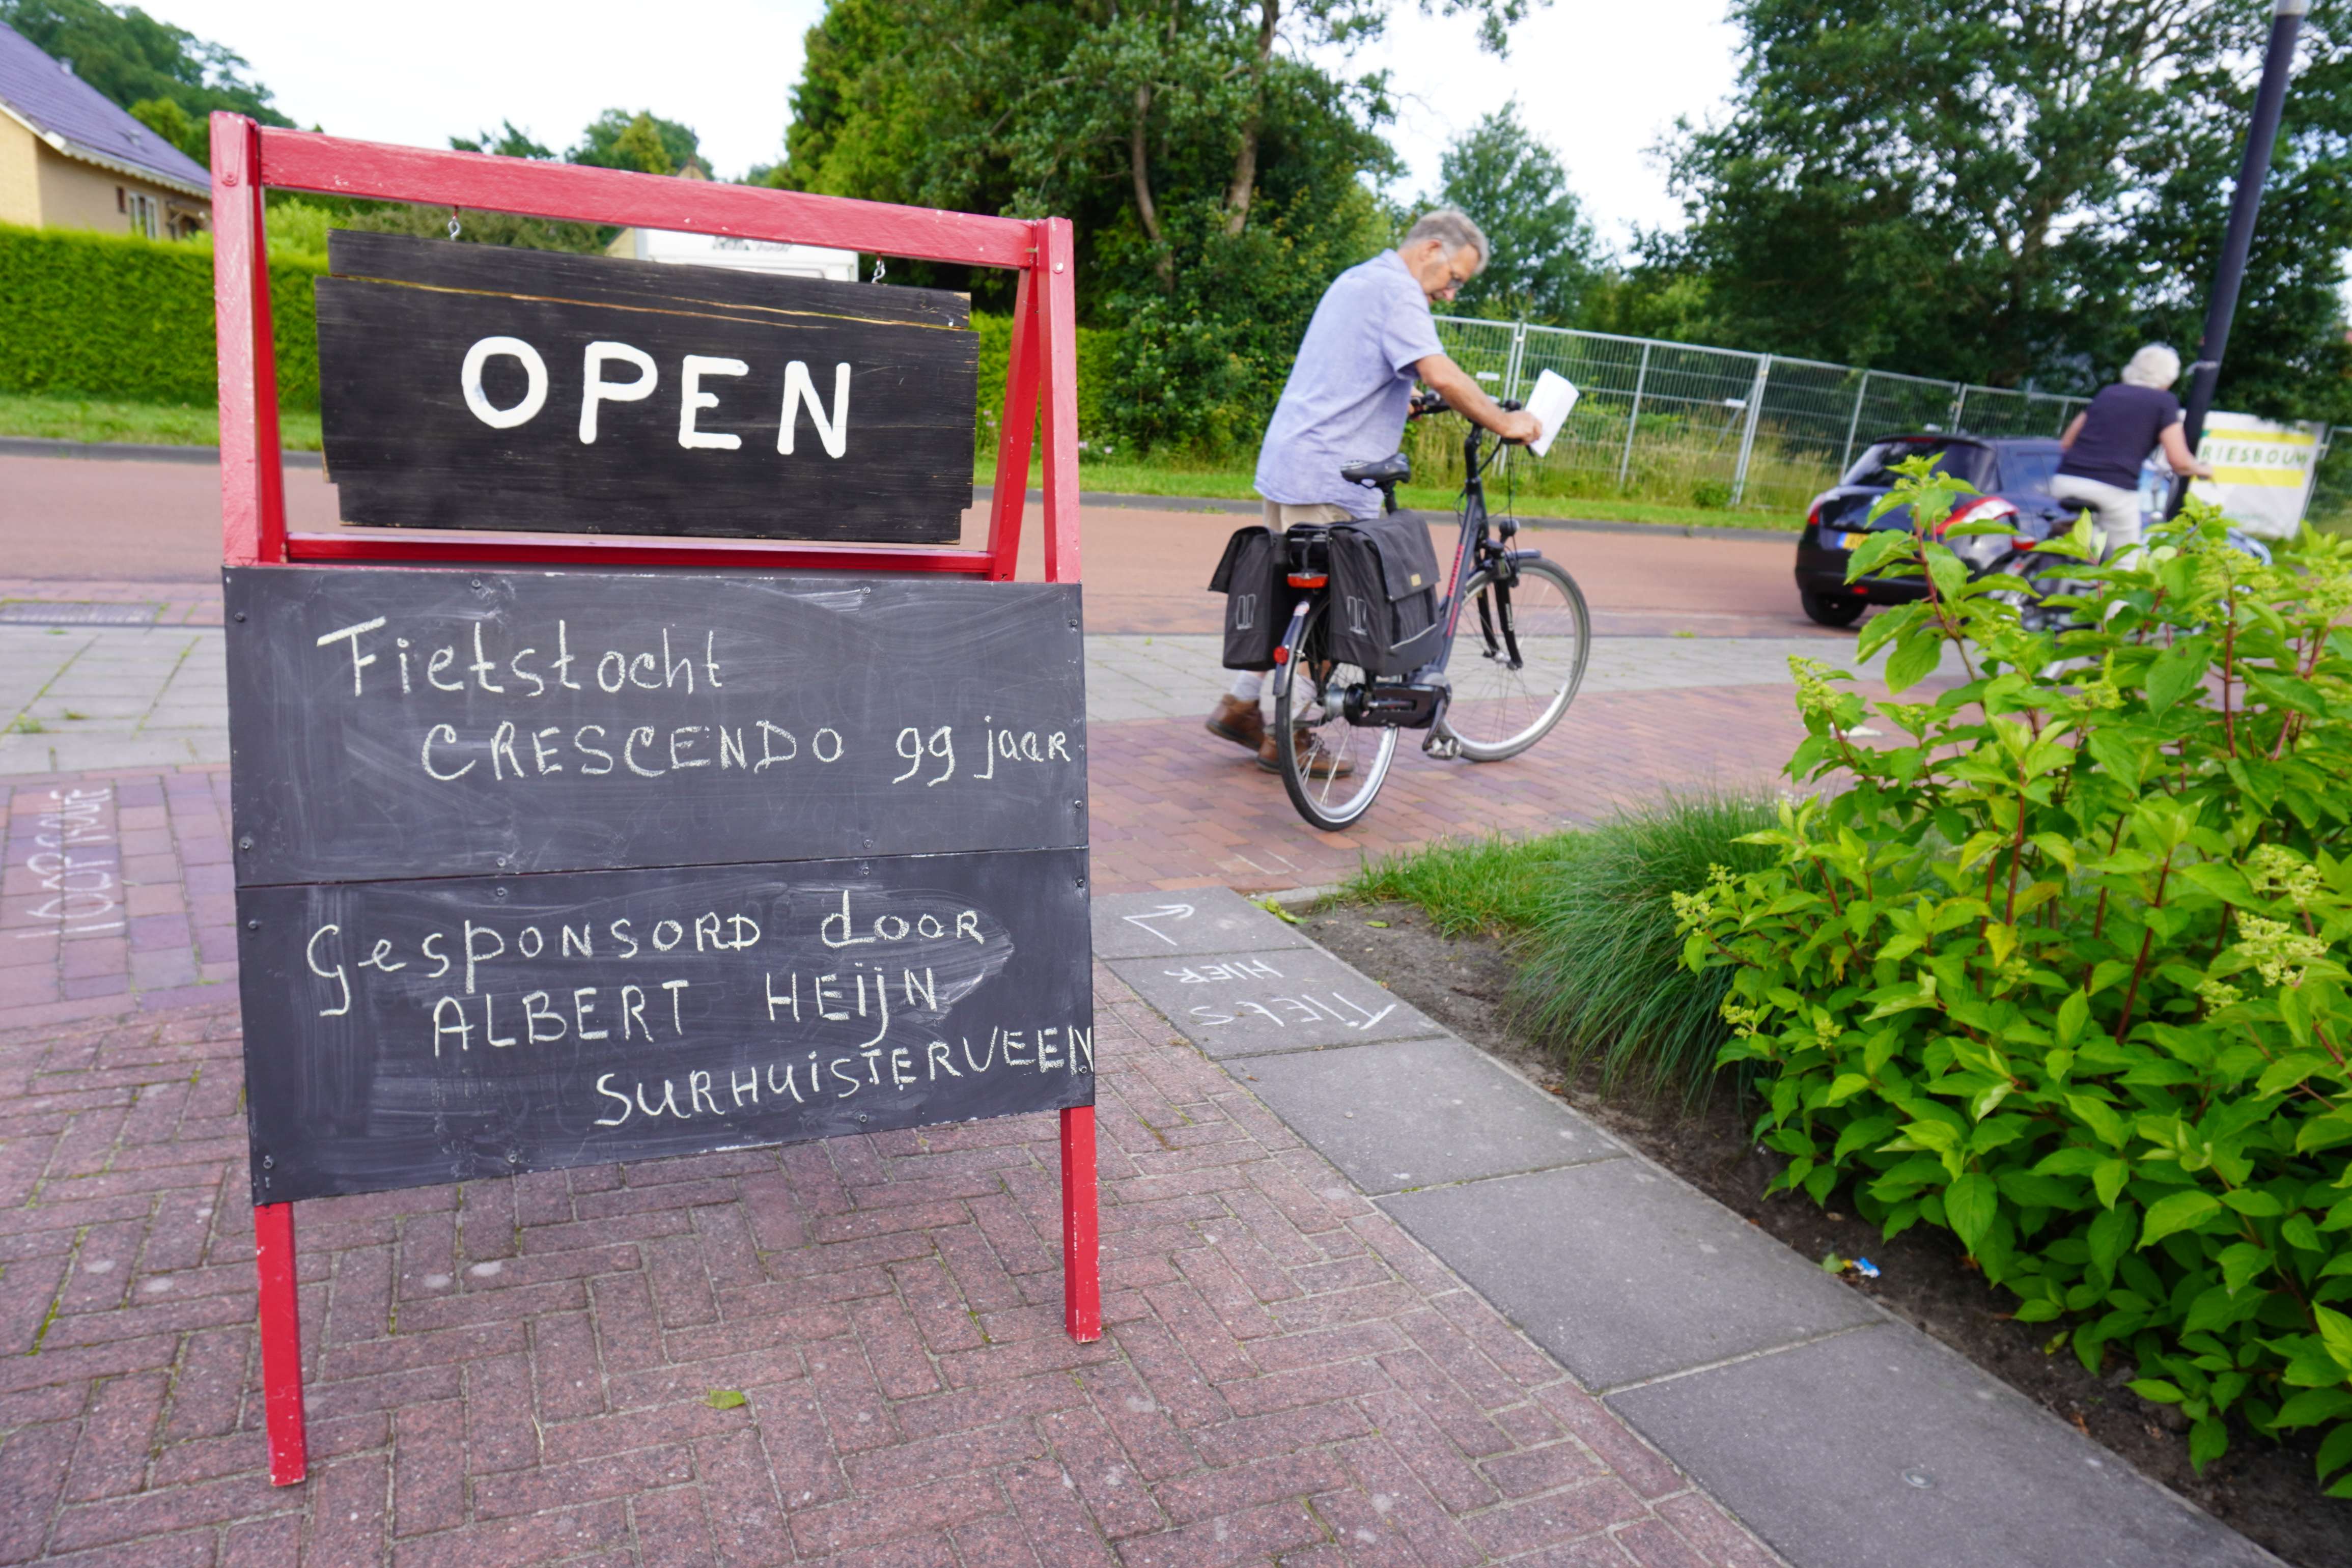 OPEN
Fietstocht
CRESCENDO 99 jaar
Gesponsord door
ALBERT HEIJN
SURHUISTERVEEN
FIETS
HIER
LOOPROUTE
RIESBOUW